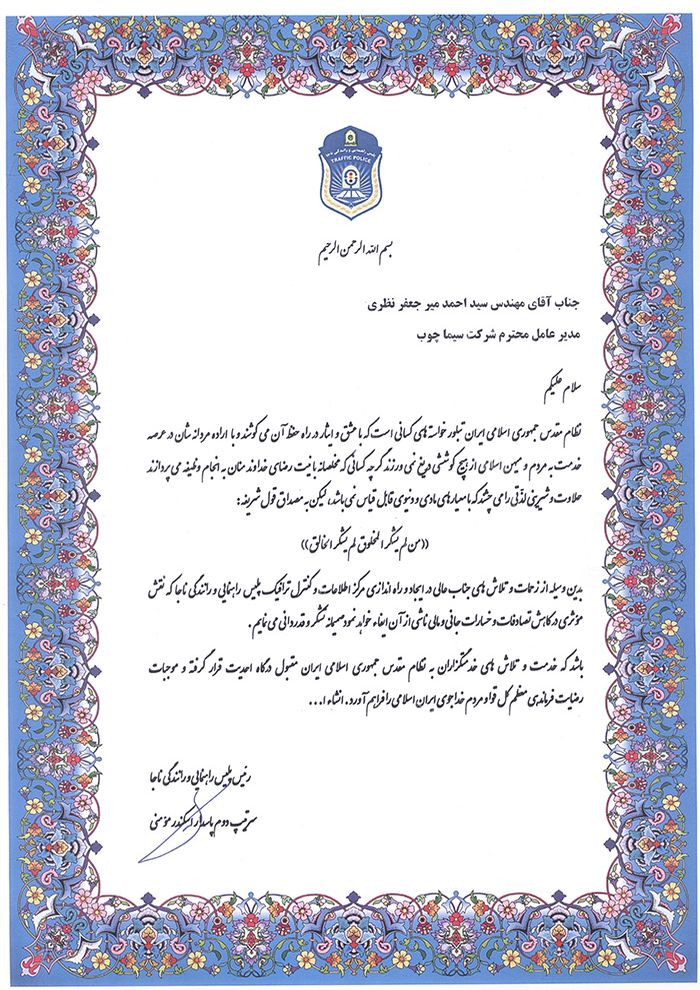 پلیس راهنمایی و رانندگی ناجا
TRAFFIC POLICE
بسم الله الرحمن الرحیم
جناب آقای مهندس سید احمد میر جعفر نظری
مدیر عامل محترم شرکت سیما چوب
سلام علیکم
نظام مقدس جمهوری اسلامی ایران تبلور خواسته های کسانی است که با عشق و ایثار در راه حفظ آن می کوشند و با اراده مردانه شان در عرصه
خدمت به مردم و میهن اسلامی از هیچ کوششی دریغ نمی ورزند گرچه کسانی که مخلصانه با نیت رضای خداوند منان به انجام وظیفه می پردازند
حلاوت و شیرینی لذتی را می چشند که با معیارهای مادی و دنیوی قابل قیاس نمی باشد، لیکن به مصداق قول شریفه :
((من لم یشکر المخلوق لم یشکر الخالق))
بدین وسیله از زحمات و تلاش های جناب عالی در ایجاد و راه اندازی مرکز اطلاعات و کنترل ترافیک پلیس راهنمایی و رانندگی ناجا که نقش
مؤثری در کاهش تصادفات و خسارات جانی و مالی ناشی از آن ایفاء خواهد نمود صمیمانه تشکر و قدردانی می نمایم .
باشد که خدمت و تلاش های خدمتگزاران به نظام مقدس جمهوری اسلامی ایران مقبول درگاه احدیت قرار گرفته و موجبات
رضایت فرماندهی معظم کل قوا و مردم خداجوی ایران اسلامی را فراهم آورد. انشاء ا...
رئیس پلیس راهنمایی و رانندگی ناجا
سرتیپ دوم پاسدار اسکندر مؤمنی